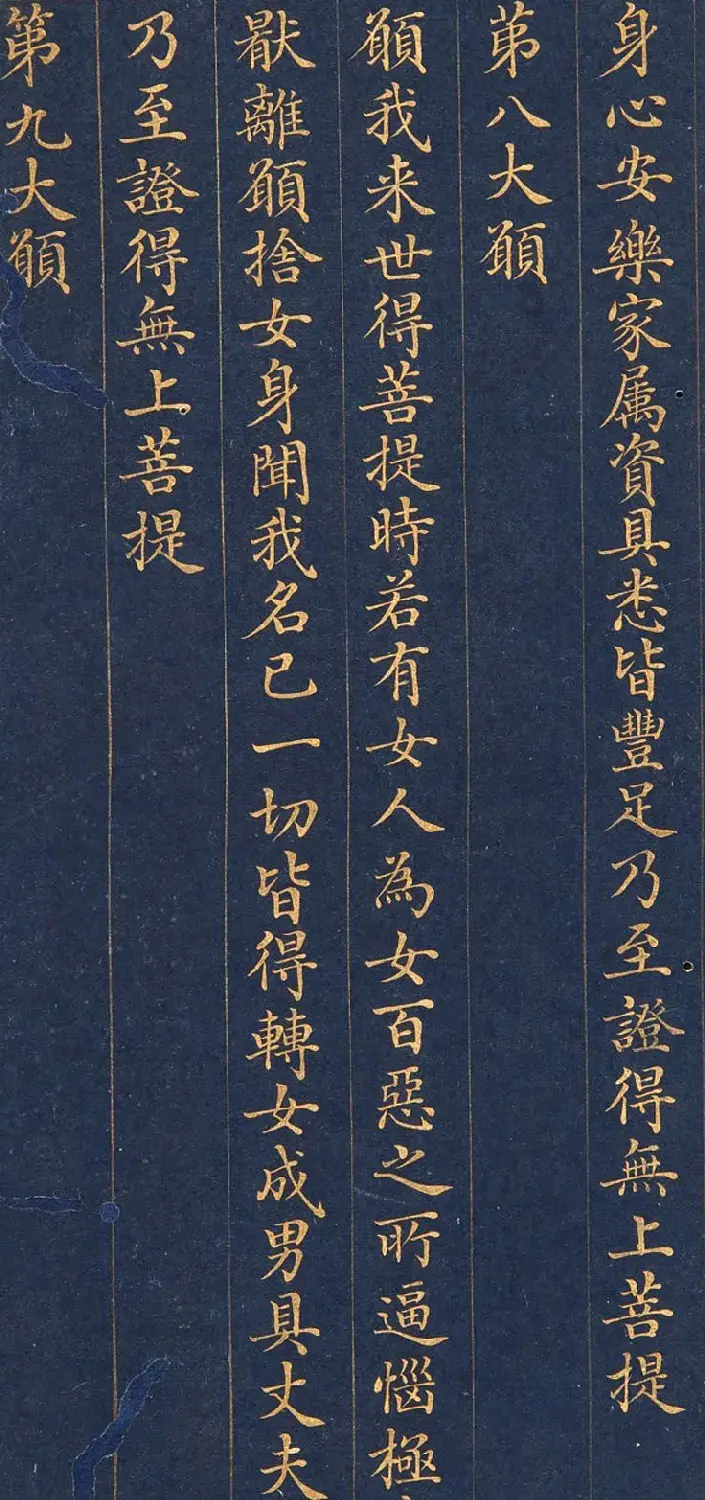 身心安樂家属資具悉皆豐足乃至證得無上菩提
苐八大願
願我来世得菩提時若有女人為女百惡之所逼惱極
猒離願捨女身聞我名已一切皆得轉女成男具丈夫
乃至證得無上菩提
第九大願